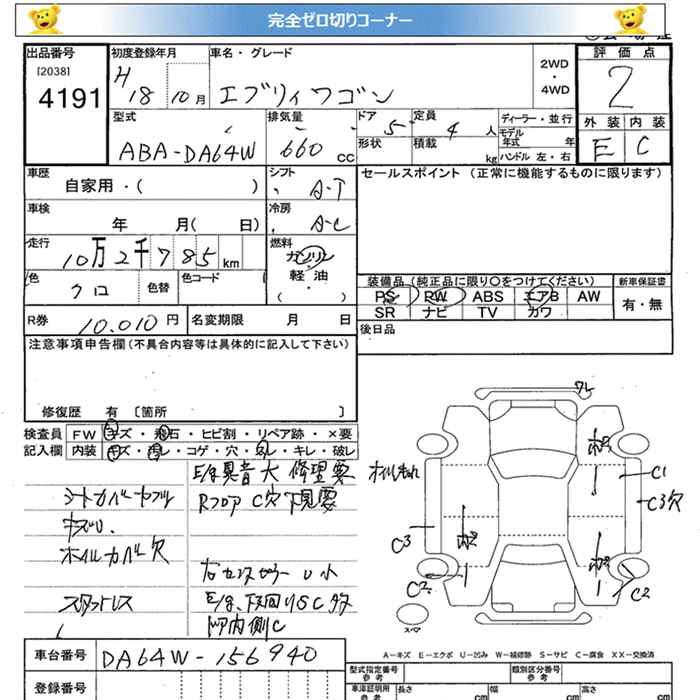 完全ゼロ切りコーナー
出品番号
[2038]
4191
初度登録年月
H 18 10月
車名・グレード
エブリィワゴン
2WD
・
4WD
評価点
2
外装 内装
E C
型式
ABA-DA64W
排気量
660 cc
ドア 5
形状
定員 4 人
積載 kg
ディーラー・並行
モデル年式 年
ハンドル 左・右
車歴
自家用・( )
シフト
A-T
セールスポイント (正常に機能するものに限ります)
車検
年 月( 日)
冷房
A-C
走行
10万2千785km
燃料
ガソリン
軽油
( ・ )
色
クロ
色替
色コード
装備品(純正品に限り○をつけてください)
新車保証書
PS PW ABS エアB AW
有・無
SR ナビ TV カワ
R券 10.010円
名変期限 月 日
後日品
注意事項申告欄(不具合内容等は具体的に記入して下さい)
修復歴 有 〔箇所 〕
検査員 FW キズ・飛石・ヒビ割・リペア跡・×要
記入欄 内装 キズ・汚レ・コゲ・穴・スレ・キレ・破レ
E/G異音大 修理要
シートカバー
Rフロア C穴下見要
キズU.
ホイルカバー欠
スタットレス
U小
E/G、下回りSC多
内側C
ワレ
C1
C3欠
C3
C2
C2
スペア
A−キズ E−エクボ U−凹み W−補修跡 S−サビ C−腐食 XX−交換済
車台番号
DA64W-156940
登録番号
型式指定番号
参考
類別区分番号
参考
車庫証明用
参考
長さ cm
幅 cm
高さ cm